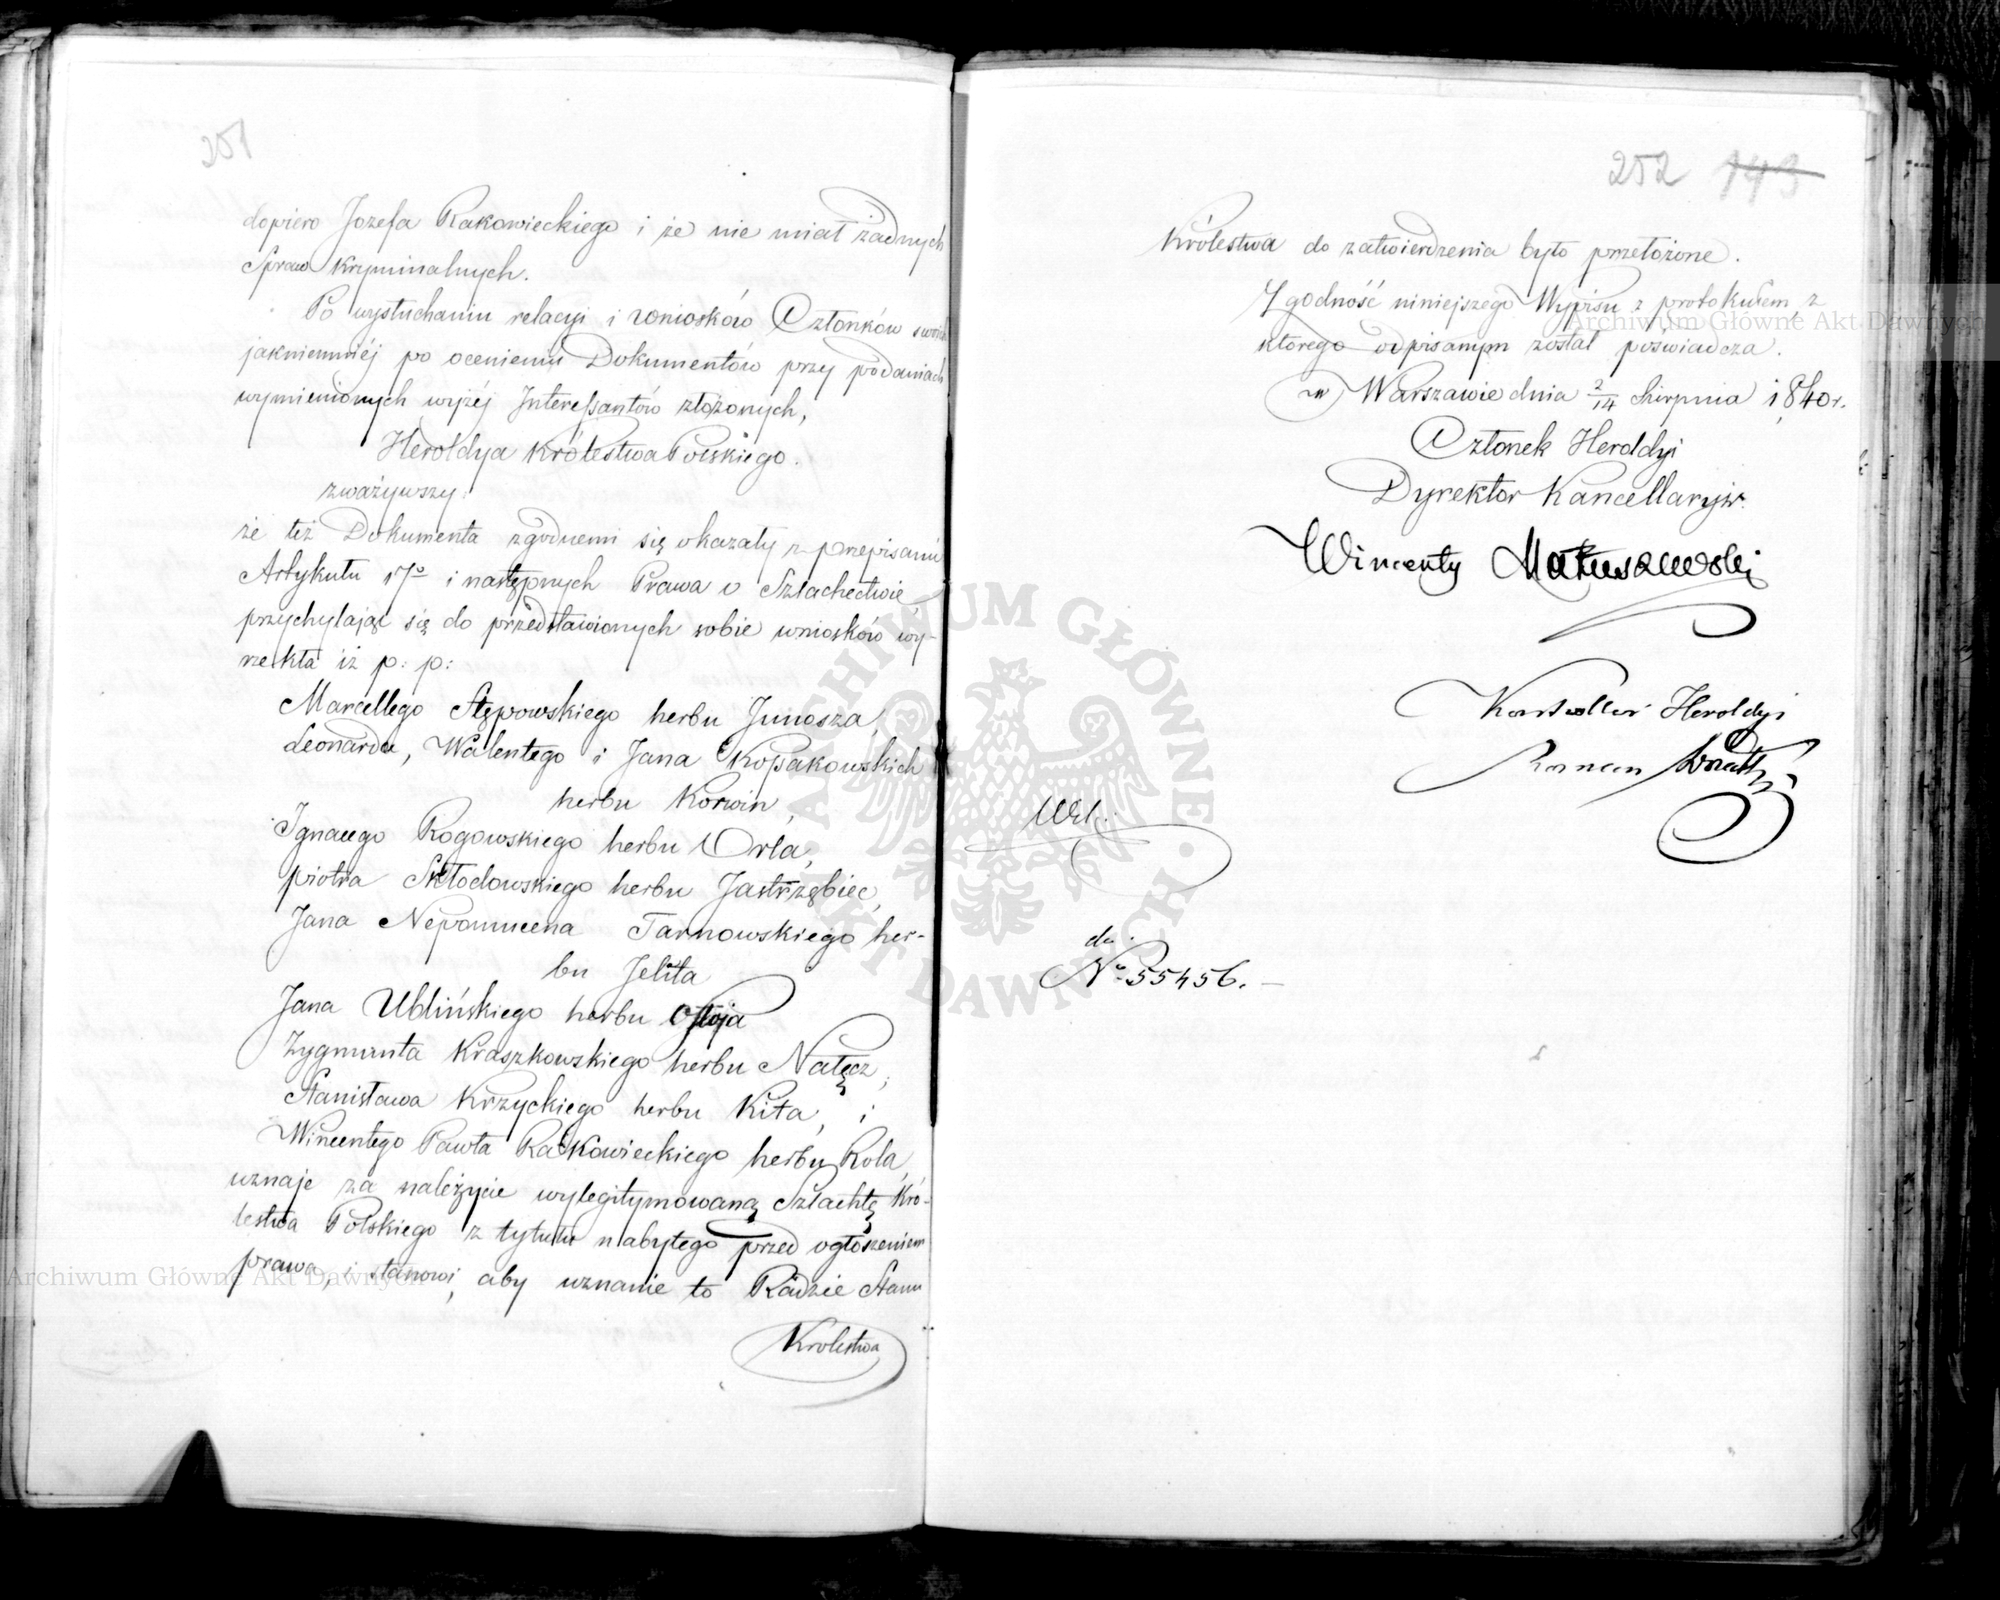 251
dopiero Jozefa Rakowieckiego i że nie miał żadnych
Spraw kryminalnych.
Po wysłuchaniu relacyi i wniosków Członków swoich
jakniemniéj po ocenieniu Dokumentów przy podaniach
wymienionych wyżéj Interessantów złożonych,
Heroldya Królestwa Polskiego.
zważywszy:
że też Dokumenta zgodnemi się okazały z przepisami
Artykułu 17º i następnych Prawa o Szlachectwie
przychylając się do przedstawionych sobie wniosków wy-
rzekła iż p: p:
Marcellego Stępowskiego herbu Junosza,
Leonarda, Walentego i Jana Kossakowskich
herbu Korwin,
Ignacego Rogowskiego herbu Orla,
piotra Skłodowskiego herbu Jastrzębiec,
Jana Nepomucena Tarnowskiego her-
bu Jelita
Jana Ublińskiego herbu Ostoja
Zygmunta Kraszkowskiego herbu Nałęcz,
Stanisława Krzyckiego herbu Kita, i
Wincentego Pawła Rakowieckiego herbu Rola,
uznaje za należycie wylegitymowaną Szlachtę Kró-
lestwa Polskiego z tytułu nabytego przed ogłoszeniem
prawa, i stanowi, aby uznanie to Radzie Stanu
Krolestwa
252 143
Królestwa do zatwierdzenia było przełożone.
Zgodność niniejszego Wypisu z protokułem, z
ktorego odpisanym został poswiadcza.
w Warszawie dnia 2/14 Sierpnia 1840 r.
Członek Heroldyi
Dyrektor Kancellaryi
Wincenty Matuszewski
Kontroller Heroldyi
Roman
do
Nº 55456.
Archiwum Główne Akt Dawnych
Archiwum Główne Akt Dawnych
ARCHIWUM GŁÓWNE AKT DAWNYCH